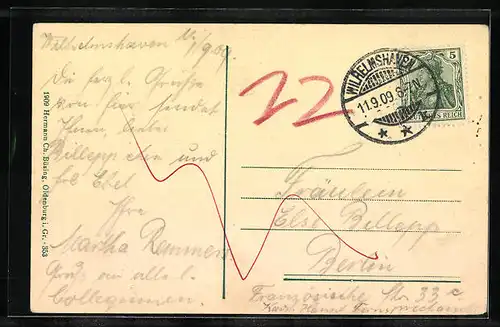 Wilhelmshaven 11/9 09.
Die herzl. Grüße
von hier sendet
Ihnen, lieber
Billepp chen und
Frl. Ebel
Ihre
Martha Remmers
Gruß an alle l.
Colleginnen.
1909 Hermann Ch. Büsing, Oldenburg i. Gr. - 353
22
WILHELMSHAVEN
11.9.09.6-7N.
5
DEUTSCHES REICH
Fräulein
Else Billepp
Berlin
Französische Str. 33 c